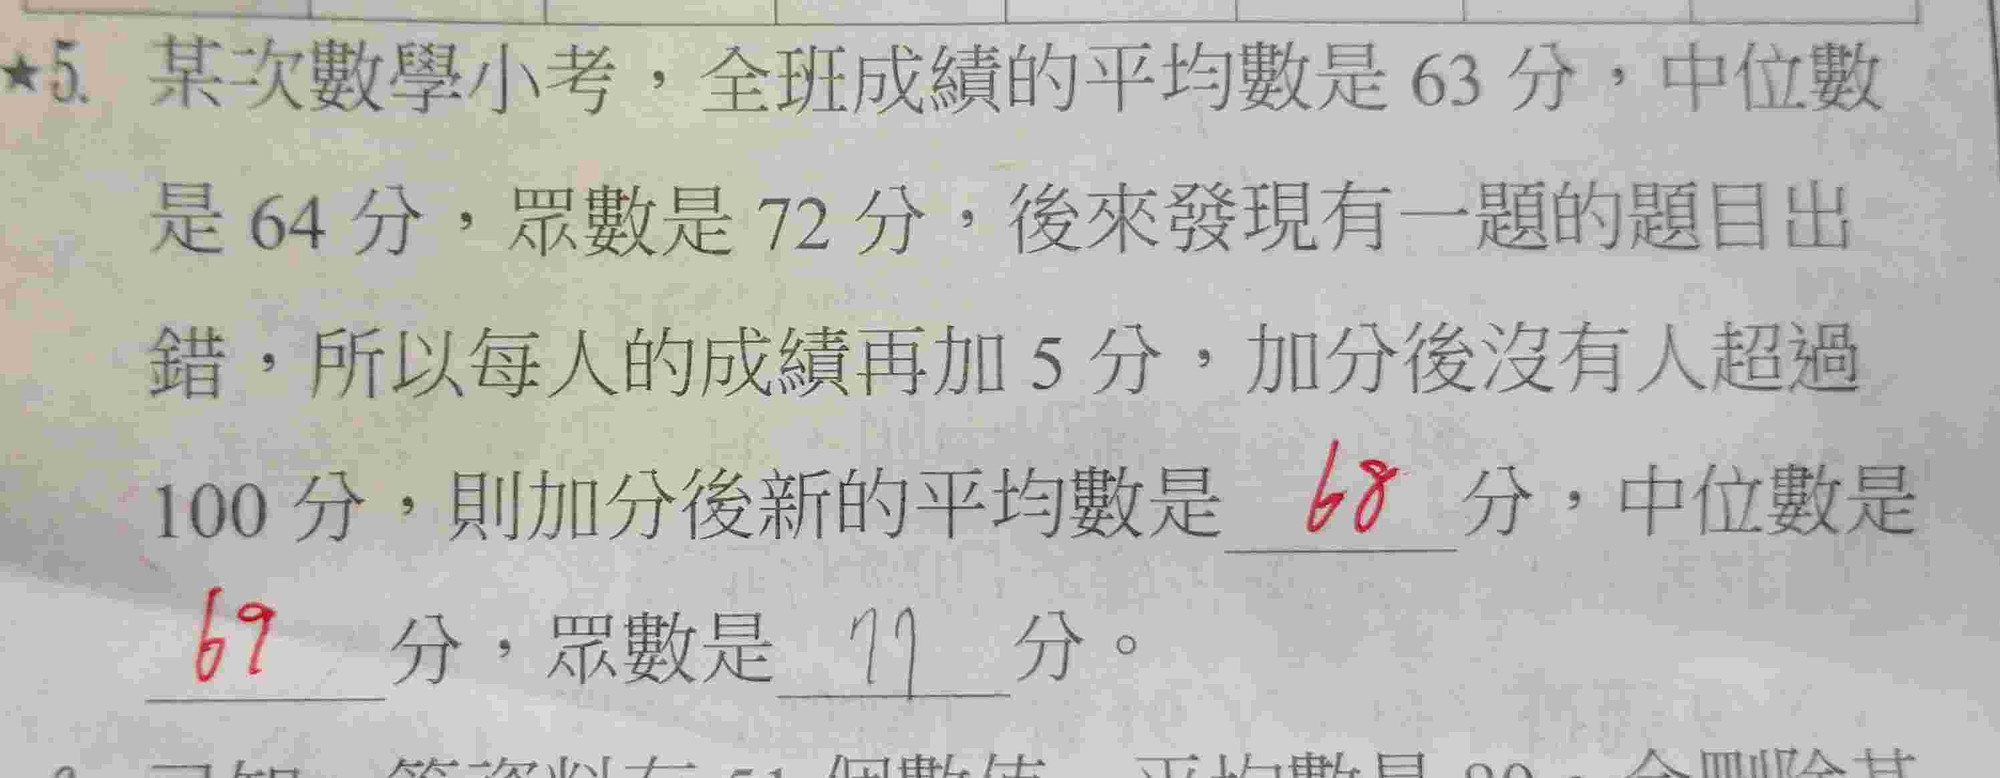 ★5. 某次數學小考，全班成績的平均數是 63 分，中位數
是 64 分，眾數是 72 分，後來發現有一題的題目出
錯，所以每人的成績再加 5 分，加分後沒有人超過
100 分，則加分後新的平均數是 68 分，中位數是
69 分，眾數是 77 分。